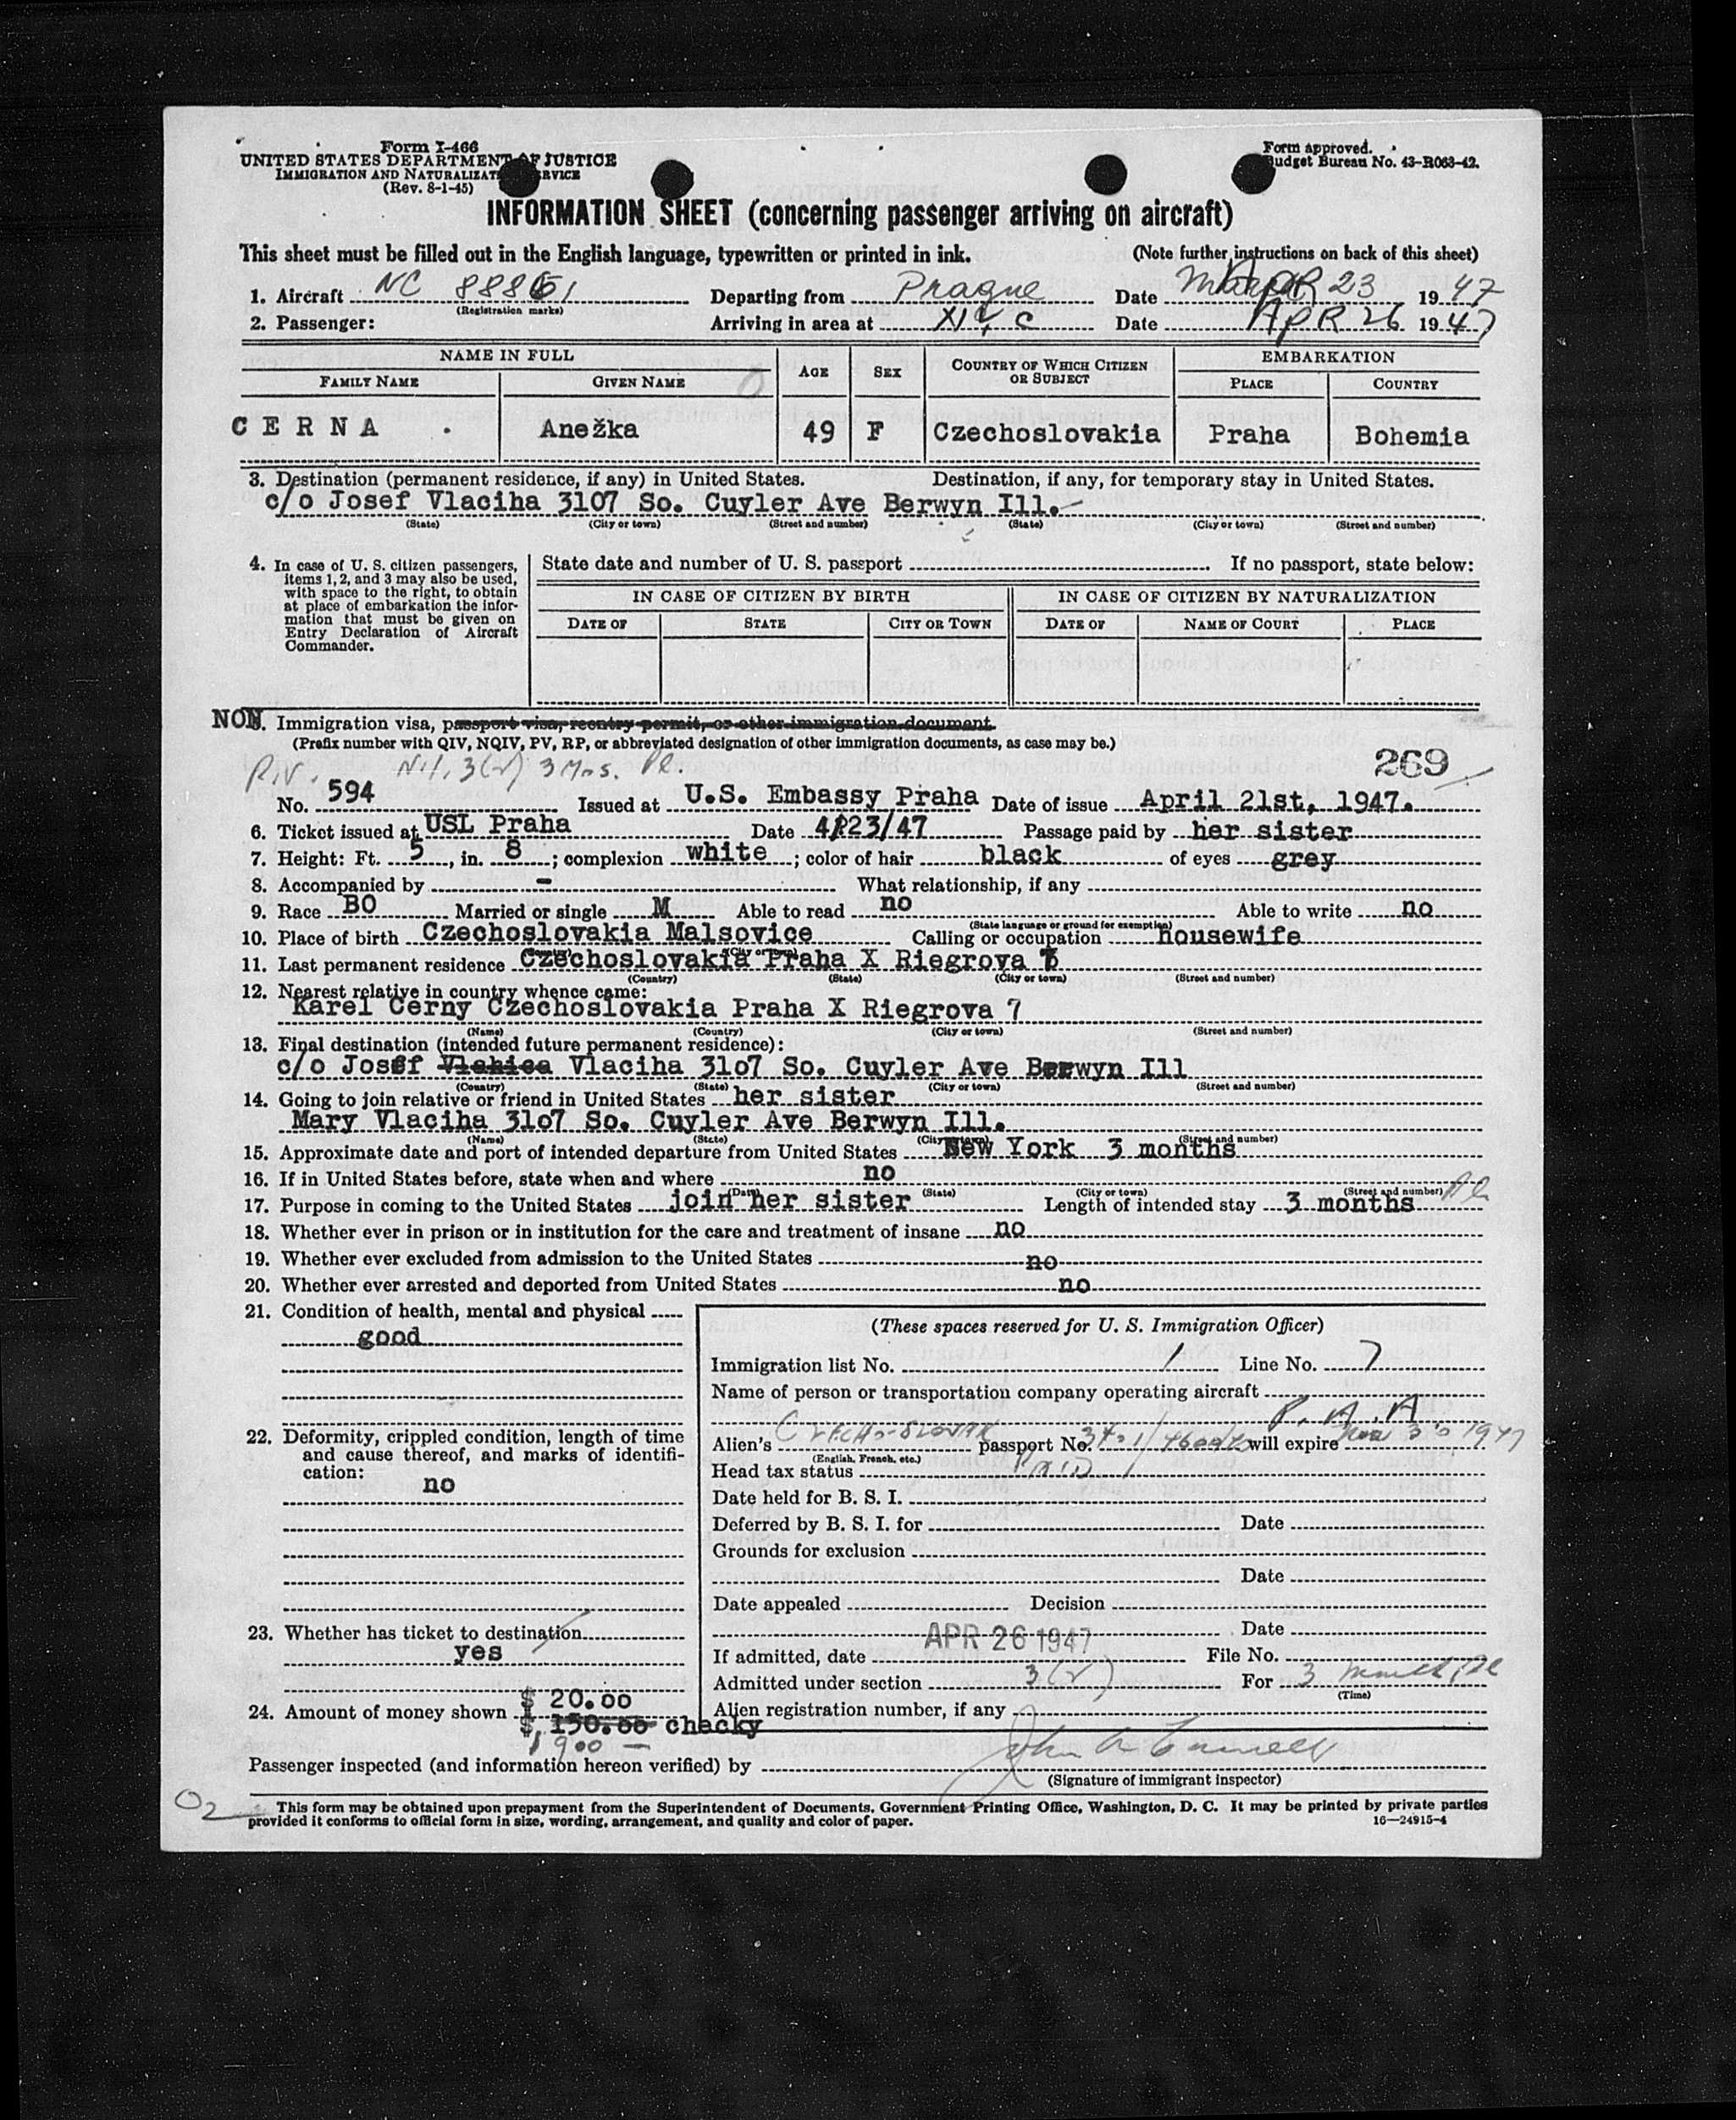 Form I-466
UNITED STATES DEPARTMENT OF JUSTICE
IMMIGRATION AND NATURALIZATION SERVICE
(Rev. 8-1-45)
Form approved.
Budget Bureau No. 43-R063-42.
INFORMATION SHEET (concerning passenger arriving on aircraft)
This sheet must be filled out in the English language, typewritten or printed in ink. (Note further instructions on back of this sheet)
1. Aircraft NC 88861 Departing from Prague Date APR 23 1947
(Registration marks)
2. Passenger: Arriving in area at NYC Date APR 26 1947
NAME IN FULL AGE SEX COUNTRY OF WHICH CITIZEN OR SUBJECT EMBARKATION
FAMILY NAME GIVEN NAME PLACE COUNTRY
CERNA Anežka 49 F Czechoslovakia Praha Bohemia
3. Destination (permanent residence, if any) in United States. Destination, if any, for temporary stay in United States.
c/o Josef Vlaciha 3107 So. Cuyler Ave Berwyn Ill.
(State) (City or town) (Street and number) (State) (City or town) (Street and number)
4. In case of U. S. citizen passengers, items 1, 2, and 3 may also be used, with space to the right, to obtain at place of embarkation the information that must be given on Entry Declaration of Aircraft Commander.
State date and number of U. S. passport If no passport, state below:
IN CASE OF CITIZEN BY BIRTH IN CASE OF CITIZEN BY NATURALIZATION
DATE OF STATE CITY OR TOWN DATE OF NAME OF COURT PLACE
NON. Immigration visa, passport visa, reentry permit, or other immigration document.
(Prefix number with QIV, NQIV, PV, RP, or abbreviated designation of other immigration documents, as case may be.)
3(2) 3 Mos.
269
No. 594 Issued at U.S. Embassy Praha Date of issue April 21st, 1947.
6. Ticket issued at USL Praha Date 4/23/47 Passage paid by her sister
7. Height: Ft. 5, in. 8; complexion white; color of hair black of eyes grey
8. Accompanied by - What relationship, if any
9. Race BO Married or single M Able to read no Able to write no
(State language or ground for exemption)
10. Place of birth Czechoslovakia Malsovice Calling or occupation housewife
(Country) (City or town)
11. Last permanent residence Czechoslovakia Praha X Riegrova 7
(Country) (State) (City or town) (Street and number)
12. Nearest relative in country whence came:
Karel Cerny Czechoslovakia Praha X Riegrova 7
(Name) (Country) (City or town) (Street and number)
13. Final destination (intended future permanent residence):
c/o Josef Vlaciha 3107 So. Cuyler Ave Berwyn Ill
(Country) (State) (City or town) (Street and number)
14. Going to join relative or friend in United States her sister
Mary Vlaciha 3107 So. Cuyler Ave Berwyn Ill.
(Name) (State) (City or town) (Street and number)
15. Approximate date and port of intended departure from United States New York 3 months
16. If in United States before, state when and where no
(Date) (State) (City or town) (Street and number)
17. Purpose in coming to the United States join her sister Length of intended stay 3 months
18. Whether ever in prison or in institution for the care and treatment of insane no
19. Whether ever excluded from admission to the United States no
20. Whether ever arrested and deported from United States no
21. Condition of health, mental and physical
good
22. Deformity, crippled condition, length of time and cause thereof, and marks of identification:
no
23. Whether has ticket to destination
yes
24. Amount of money shown $ 20.00
$ 150.00 checky
(These spaces reserved for U. S. Immigration Officer)
Immigration list No. 1 Line No. 7
Name of person or transportation company operating aircraft
P.A.A
Alien's CZECHO-SLOVAK passport No. will expire 1947
(English, French, etc.)
Head tax status PAID
Date held for B. S. I.
Deferred by B. S. I. for Date
Grounds for exclusion
Date
Date appealed Decision
Date
If admitted, date APR 26 1947 File No.
Admitted under section 3(2) For 3 months
(Time)
Alien registration number, if any
Passenger inspected (and information hereon verified) by
(Signature of immigrant inspector)
O2
This form may be obtained upon prepayment from the Superintendent of Documents, Government Printing Office, Washington, D. C. It may be printed by private parties
provided it conforms to official form in size, wording, arrangement, and quality and color of paper. 16—24915-4